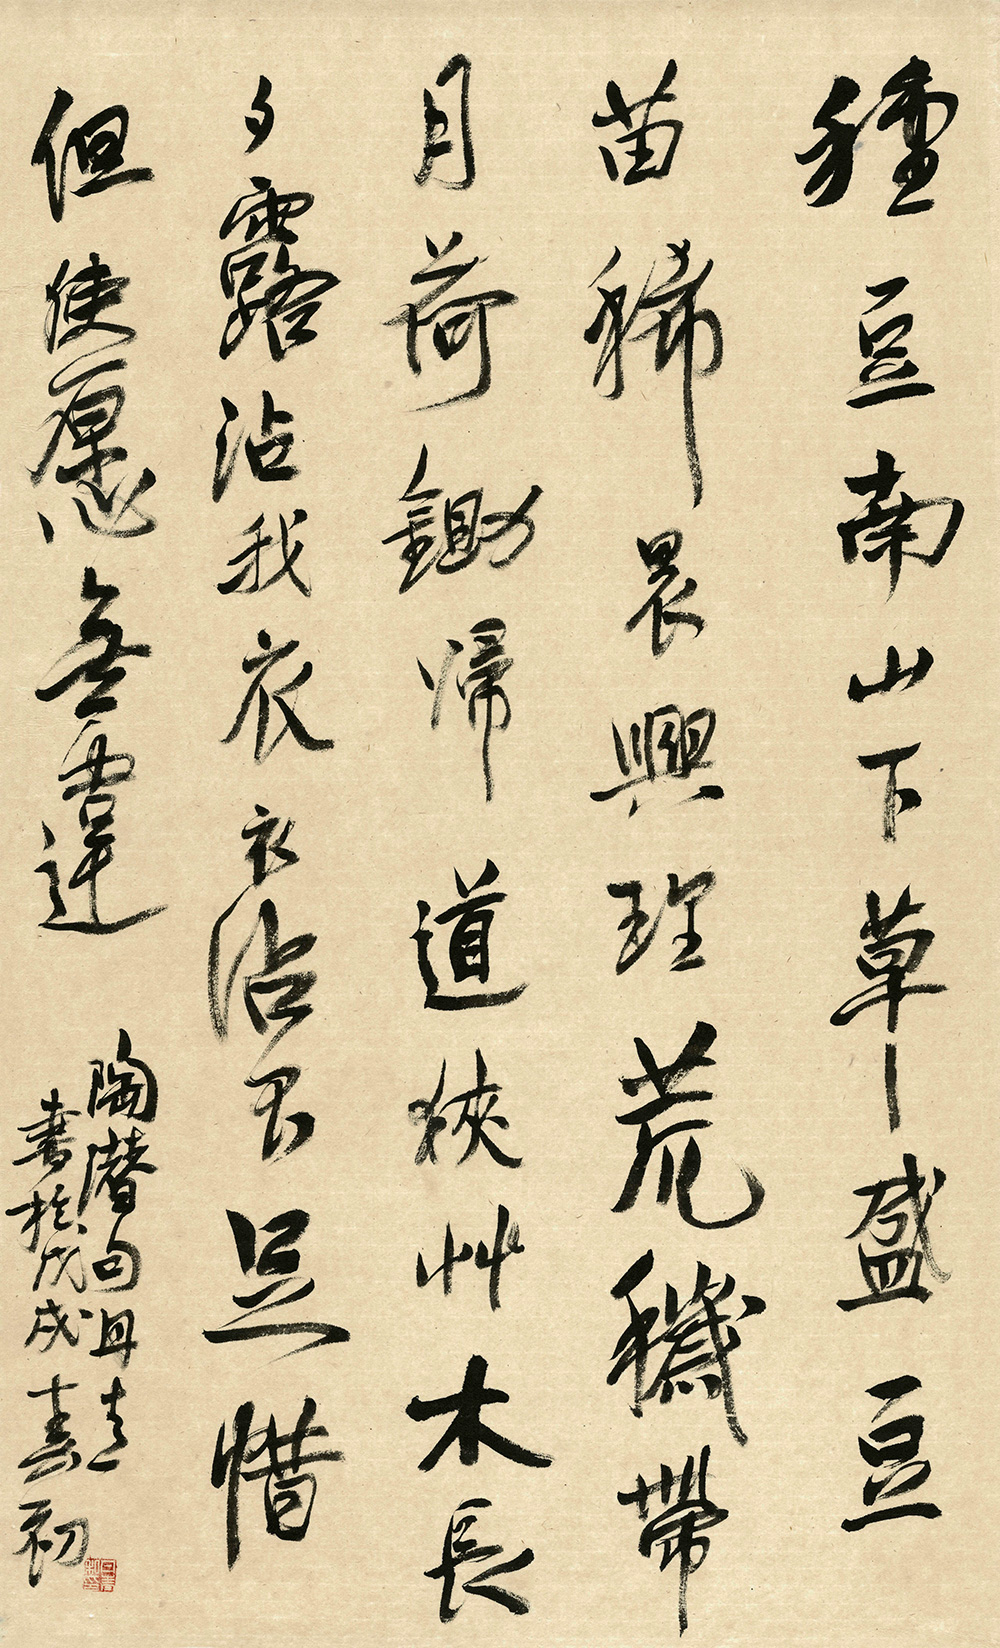 種豆南山下草盛豆
苗稀晨興理荒穢帶
月荷鋤歸道狹艸木長
夕露沾我衣衣沾不足惜
但使愿無違
陶潛句
書於戊戌春初